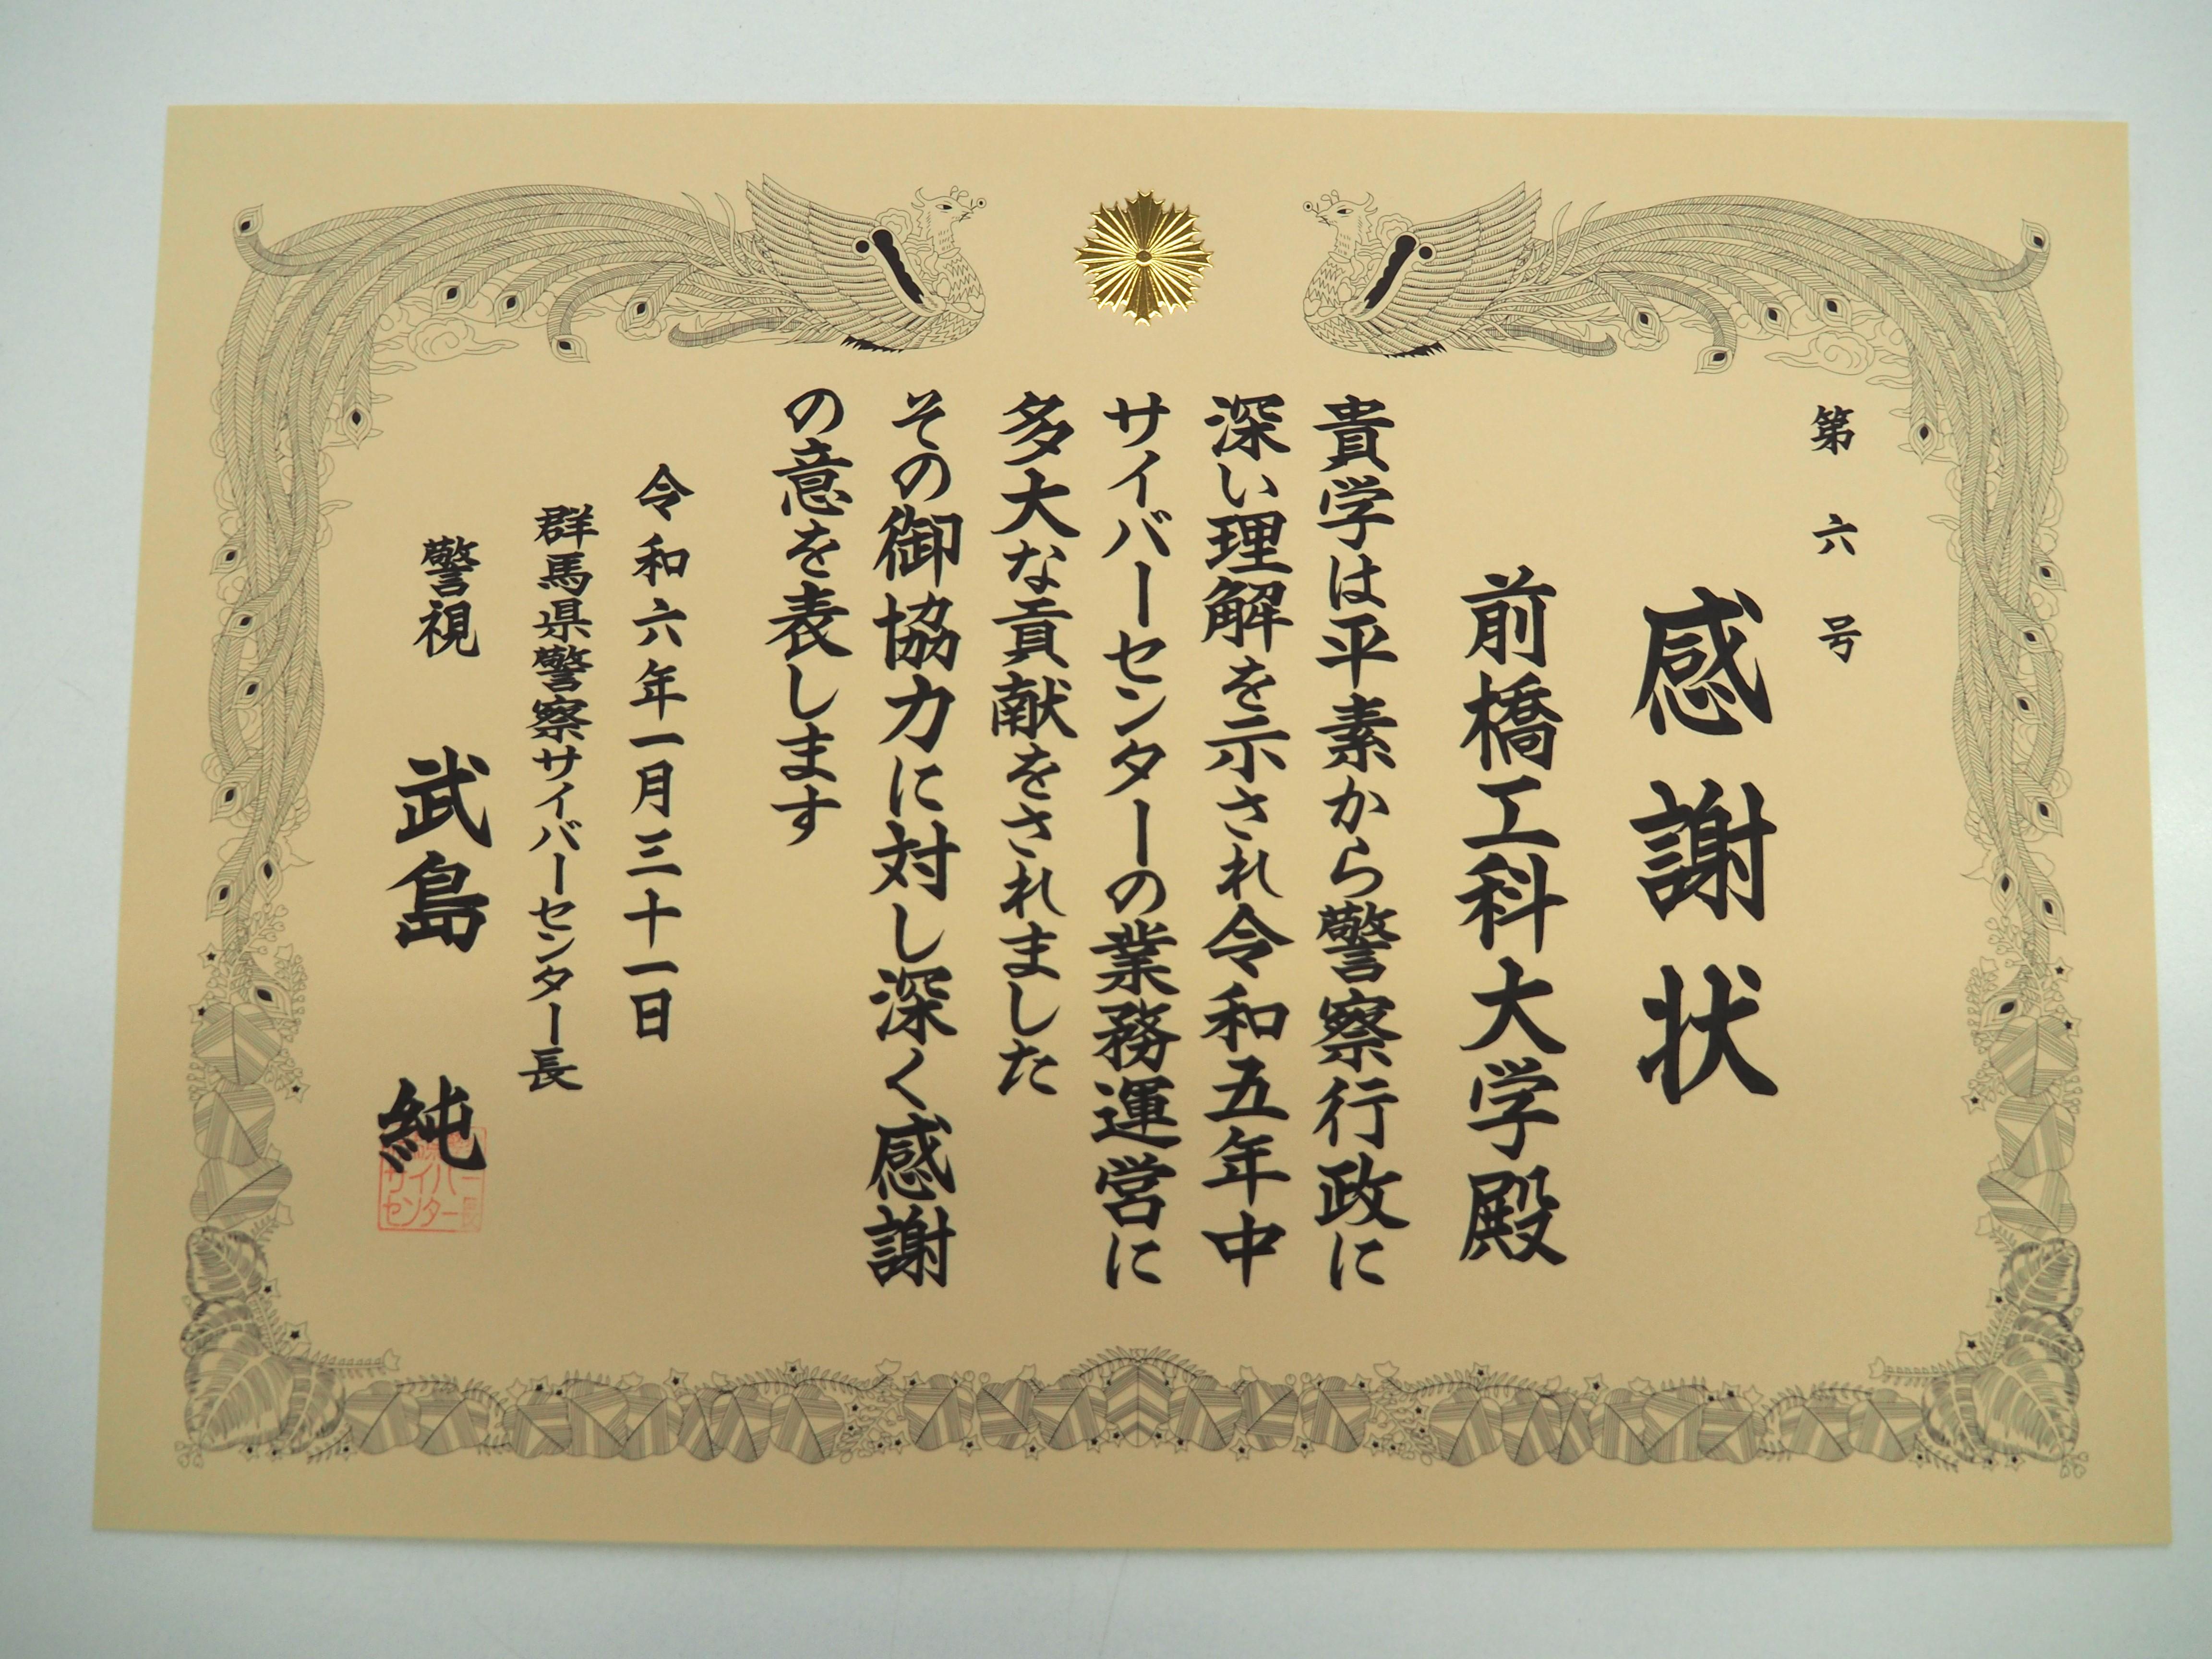 第六号
感謝状
前橋工科大学殿
貴学は平素から警察行政に
深い理解を示され令和五年中
サイバーセンターの業務運営に
多大な貢献をされました
その御協力に対し深く感謝
の意を表します
令和六年一月三十一日
群馬県警察サイバーセンター長
警視 武島 純
サイバー
センター長